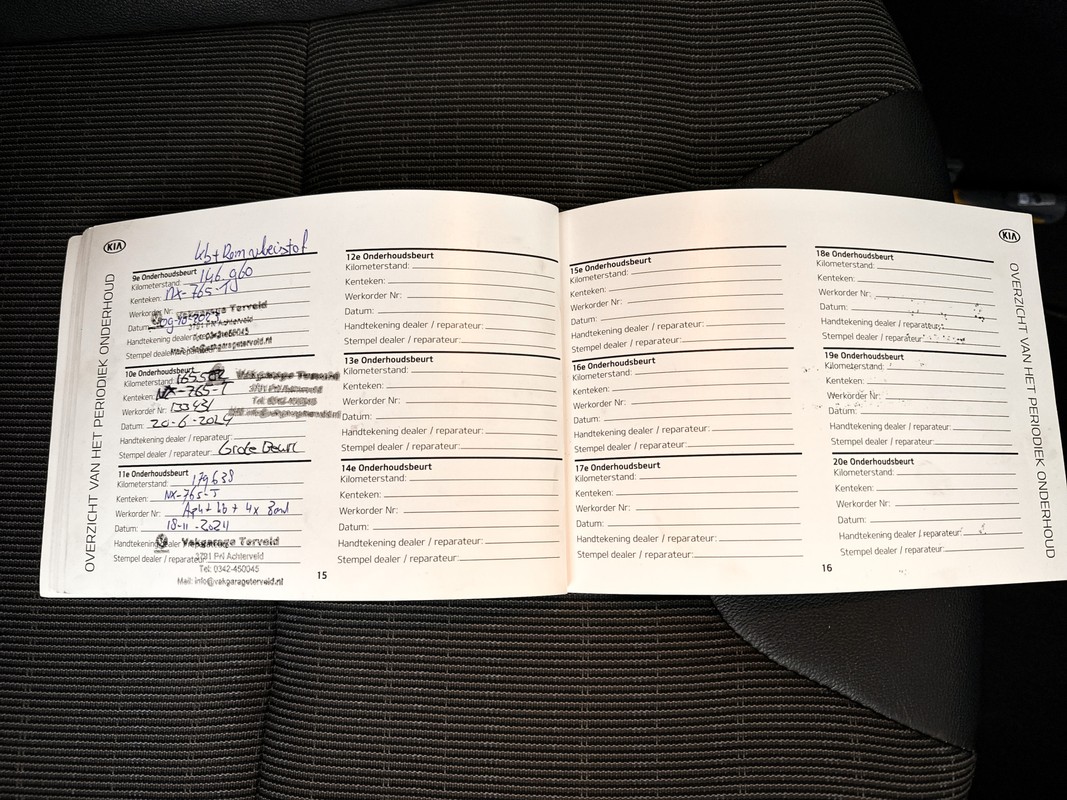 KIA
OVERZICHT VAN HET PERIODIEK ONDERHOUD
kb +
9e Onderhoudsbeurt
Kilometerstand: 146960
Kenteken: NX-765-T
Werkorder Nr:
Vakgarage Terveld
Datum:
3791 PN Achterveld
Handtekening dealer
Tel: 0342-450045
Stempel dealer
Mail: info@vakgarageterveld.nl
10e Onderhoudsbeurt
Kilometerstand
Vakgarage Terveld
Kenteken: NX-765-T
3791 PN Achterveld
Werkorder Nr: 133431
Tel: 0342-450045
Datum: 20-6-2024
Handtekening dealer / reparateur:
Stempel dealer / reparateur: Grote Beurt
11e Onderhoudsbeurt
Kilometerstand: 179638
Kenteken: NX-765-T
Werkorder Nr: Apk + kb + 4x Band
Datum: 18-11-2024
Handtekening dealer
Vakgarage Terveld
Stempel dealer / reparateur:
3791 PN Achterveld
Tel: 0342-450045
Mail: info@vakgarageterveld.nl
12e Onderhoudsbeurt
Kilometerstand:
Kenteken:
Werkorder Nr:
Datum:
Handtekening dealer / reparateur:
Stempel dealer / reparateur:
13e Onderhoudsbeurt
Kilometerstand:
Kenteken:
Werkorder Nr:
Datum:
Handtekening dealer / reparateur:
Stempel dealer / reparateur:
14e Onderhoudsbeurt
Kilometerstand:
Kenteken:
Werkorder Nr:
Datum:
Handtekening dealer / reparateur:
Stempel dealer / reparateur:
15
15e Onderhoudsbeurt
Kilometerstand:
Kenteken:
Werkorder Nr:
Datum:
Handtekening dealer / reparateur:
Stempel dealer / reparateur:
16e Onderhoudsbeurt
Kilometerstand:
Kenteken:
Werkorder Nr:
Datum:
Handtekening dealer / reparateur:
Stempel dealer / reparateur:
17e Onderhoudsbeurt
Kilometerstand:
Kenteken:
Werkorder Nr:
Datum:
Handtekening dealer / reparateur:
Stempel dealer / reparateur:
16
18e Onderhoudsbeurt
Kilometerstand:
Kenteken:
Werkorder Nr:
Datum:
Handtekening dealer / reparateur:
Stempel dealer / reparateur:
19e Onderhoudsbeurt
Kilometerstand:
Kenteken:
Werkorder Nr:
Datum:
Handtekening dealer / reparateur:
Stempel dealer / reparateur:
20e Onderhoudsbeurt
Kilometerstand:
Kenteken:
Werkorder Nr:
Datum:
Handtekening dealer / reparateur:
Stempel dealer / reparateur:
KIA
OVERZICHT VAN HET PERIODIEK ONDERHOUD